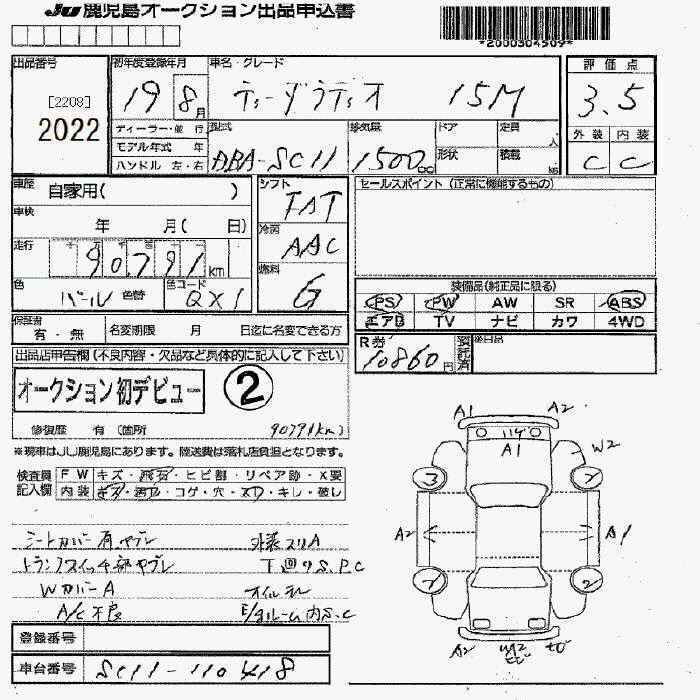 JU鹿児島オークション出品申込書
*2000304509*
出品番号
[2208]
2022
初年度登録年月
19 8月
車名・グレード
ティーダラティオ 15M
評価点
3.5
外装 内装
C C
ディーラー・並行
モデル年式 年
ハンドル 左・右
型式
DBA-SC11
排気量
1500cc
ドア
形状
定員
人
積載
kg
車歴 自家用( )
車検 年 月( 日)
走行 90,791km
色 パール 色替
色コード QX1
シフト FAT
冷房 AAC
燃料 G
セールスポイント (正常に機能するもの)
装備品(純正品に限る)
PS PW AW SR ABS
エアB TV ナビ カワ 4WD
保証書 有・無
名変期限 月 日迄に名変できる方
R券 10860円
預託済
出品店申告欄(不良内容・欠品など具体的に記入して下さい)
オークション初デビュー
2
修復歴 有 (箇所 90791km)
※現車はJU鹿児島にあります。陸送費は落札店負担となります。
検査員記入欄
FW キズ・飛石・ヒビ割・リペア跡・X要
内装 キズ・汚れ・コゲ・穴・スレ・キレ・破レ
シートカバー有 ヤブレ 外装スリA
トランクスイッチ部ヤブレ 下回りS,P,C
WカバーA オイルモレ
A/C不良 E/gルーム内S,C
登録番号
車台番号 SC11-110418
A1 A2
114
A1
W2
3 7
A2 A1
7 2
A2 W2